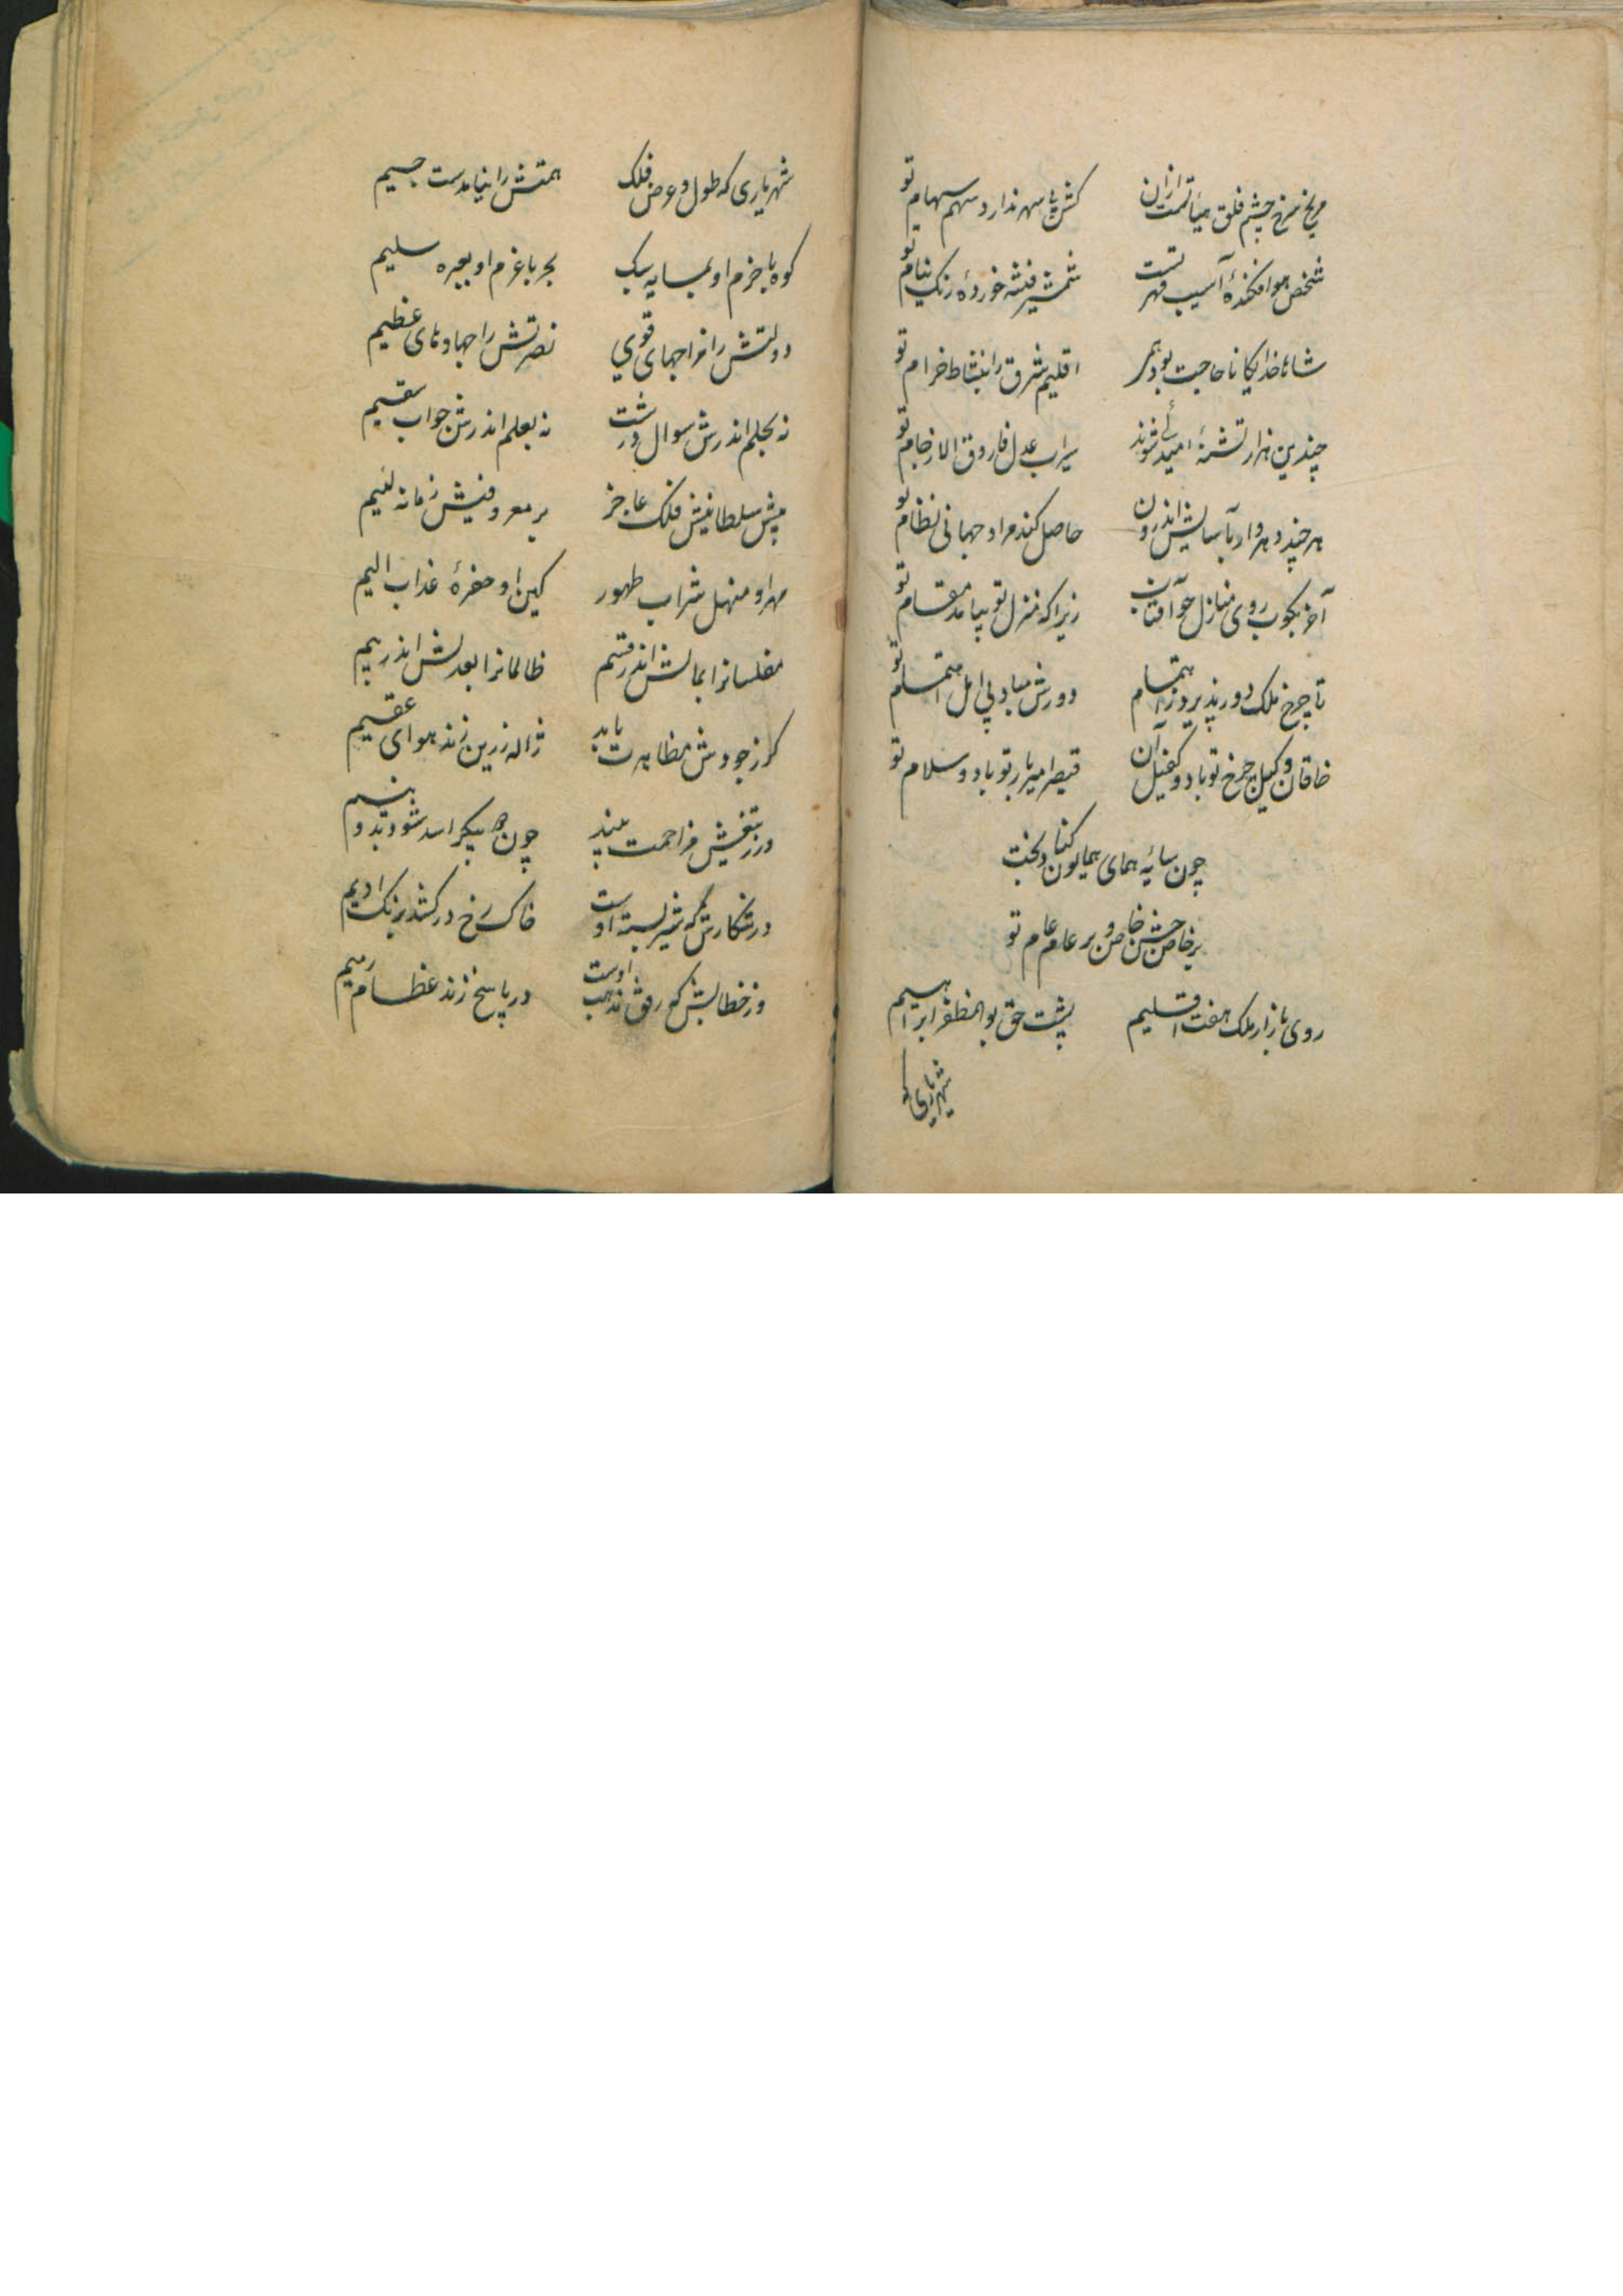 مریخ سرخ چشم فلق هیأتست ازان کش پاس مهر ندارد سهم سهام تو
شخص هوا فکندهٔ آسیب قهر تست شمشیر فتنه خوردهٔ زنک نیام تو
شاها خدایکانا حاجت بود همی اقلیم شرق را بنشاط خرام تو
چندین هزار تشنهٔ امید می شوند سیراب عدل فاروق الا ز جام تو
هر چند دهر وار بآسایش اندرون حاصل کند مراد جهانی نظام تو
آخر بکوب روی منازل چو آفتاب زیرا که منزل تو بیامد مقام تو
تا چرخ ملک دور پذیرد ز اهتمام دورش مباد بی امل اهتمام تو
خاقان وکیل چرخ تو باد و کفیل آن قیصر امیر بار تو باد و سلام تو
چون سایهٔ همای همایون کناد بخت
بر خاص جشن خاص و بر عام عام تو
روی بازار ملک هفت اقلیم پشت حق بو المظفر ابراهیم
شهریاری که
شهریاری که طول و عرض فلک همتش را نیامدست جسیم
کوه با حزم او بسایه سبک بحر با عزم او بعبره سلیم
دولتش را مزاجهای قوی نصرتش را جهادهای عظیم
نه بحلم اندرش سوال درشت نه بعلم اندرش جواب سقیم
پیش سلطانیش فلک عاجز بر معروفیش زمانه لئیم
مهر او منهل شراب طهور کین او حفرهٔ عذاب الیم
مفلسانرا بمالش اندر قسم ظالمانرا بعدلش اندر بیم
کر ز جودش مظاهرت یابد ژاله زرین زند هوای عقیم
ور ز تیغش مزاحمت بیند چون دو پیکر اسد شود بدو نیم
در شکارش که شیر بسته اوست خاک رخ درکشد برنک ادیم
وز خطابش که رفق مذهب اوست در پاسخ زند عظام رمیم